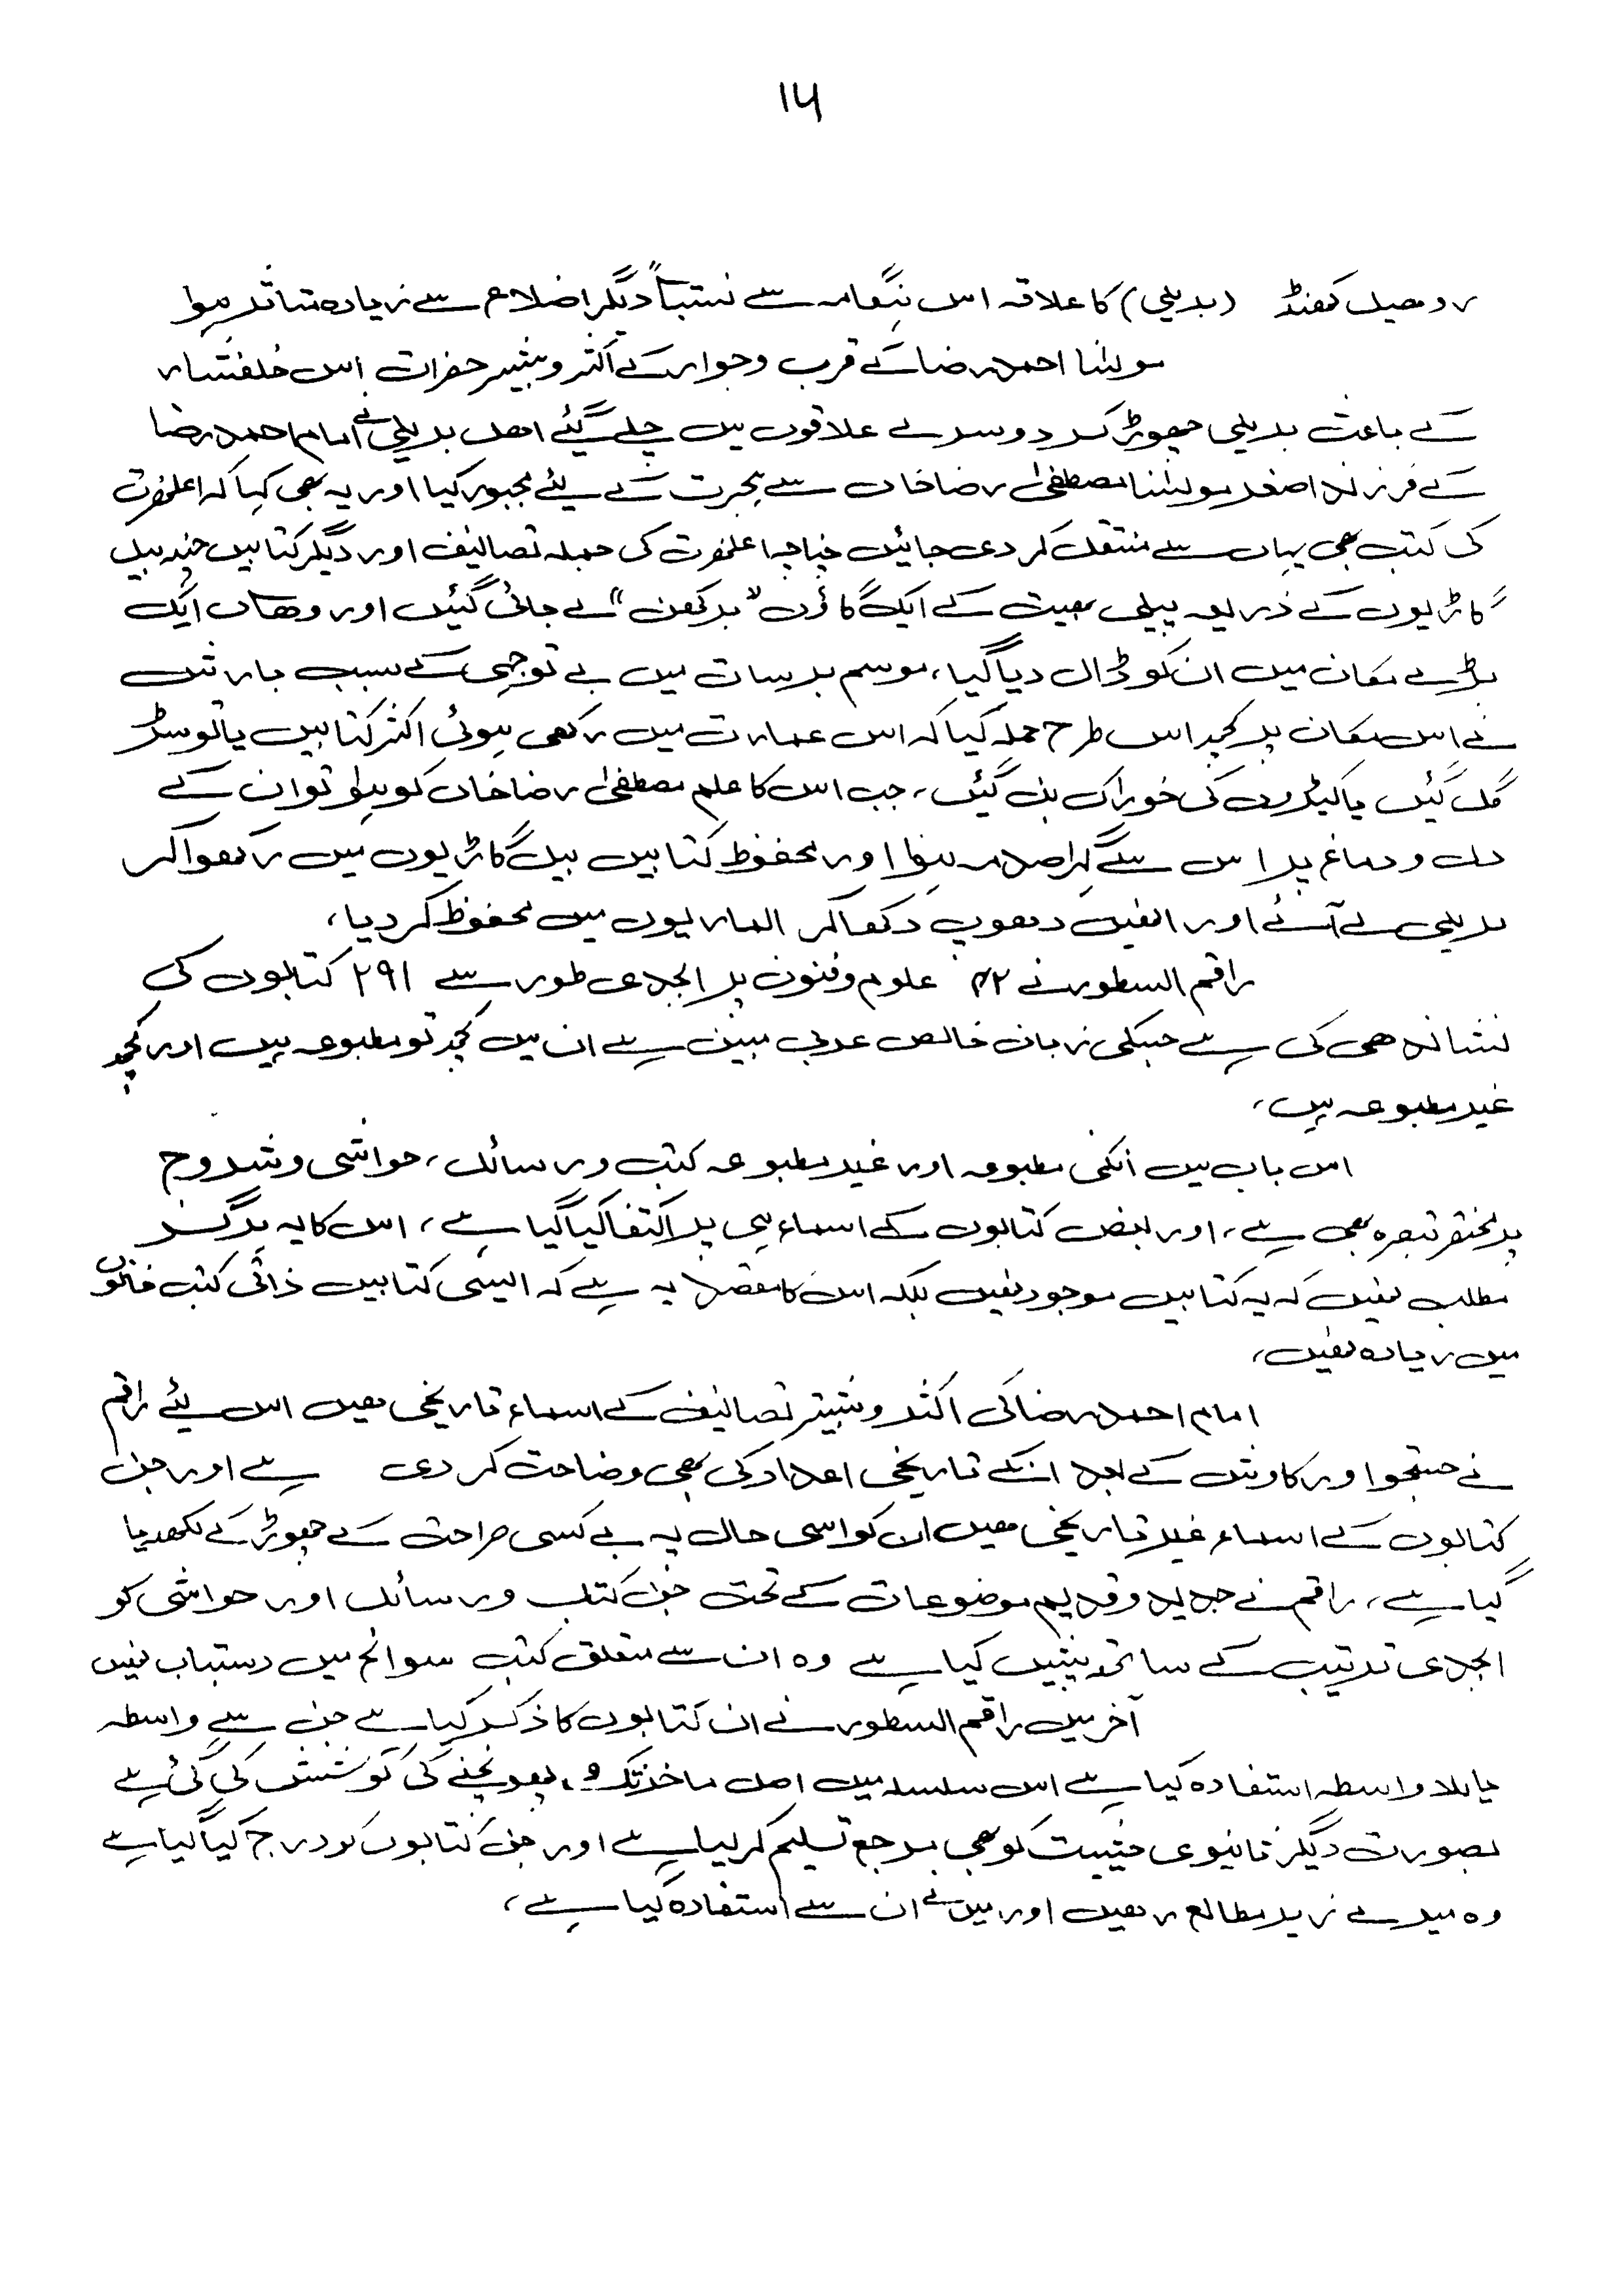 ۱۶
روھیل کھنڈ (بریلی) کا علاقہ اس ہنگامہ سے نسبتاً دیگر اضلاع سے زیادہ متاثر ہوا
مولٰنا احمد رضا کے قرب وجوار کے اکثر وبیشتر حضرات اس خلفشار
کے باعث بریلی چھوڑ کر دوسرے علاقوں میں چلے گیئے اھل بریلی نے امام احمد رضا
کے فرزند اصغر مولٰنا مصطفیٰ رضا خاں سے ہجرت کے لیئے مجبور کیا اور یہ بھی کہا کہ اعلحضرت
کی کتب بھی یہاں سے منتقل کر دی جائیں چناچہ اعلحضرت کی جملہ تصانیف اور دیگر کتابیں چند بیل
گاڑیوں کے ذریعہ پیلی بھیت کے ایک گاؤں "برکھن" لے جائی گئیں اور وھاں ایک
بڑے مکان میں ان کو ڈال دیا گیا، موسم برسات میں بے توجہی کے سبب بارش
نے اس مکان پر کچھ اس طرح حملہ کیا کہ اس عمارت میں رکھی ہوئی اکثر کتابیں یا تو سڑ
گل گئیں یا کیڑوں کی خوراک بن گئیں، جب اس کا علم مصطفیٰ رضا خاں کو ہوا تو ان کے
دل و دماغ پر اس سے گہرا صدمہ ہوا اور محفوظ کتابیں بیل گاڑیوں میں رکھوا کر
بریلی لے آئے اور انھیں دھوپ دکھا کر الماریوں میں محفوظ کر دیا،
راقم السطور نے ۴۲ علوم وفنون پر ابجدی طور سے ۲۹۱ کتابوں کی
نشاندھی کی ہے جنکی زبان خالص عربی مبین ہے ان میں کچھ تو مطبوعہ ہیں اور کچھ
غیر مطبوعہ ہیں،
اس باب میں انکی مطبوعہ اور غیر مطبوعہ کتب ورسائل، حواشی وشروح
پر مختصر تبصرہ بھی ہے، اور بعض کتابوں کے اسماء ہی پر اکتفا کیا گیا ہے، اس کا یہ ہرگز
مطلب نھیں کہ یہ کتابیں موجود نھیں بلکہ اس کا مقصد یہ ہے کہ ایسی کتابیں ذاتی کتب خانوں
میں زیادہ نھیں،
امام احمد رضا کی اکثر وبیشتر تصانیف کے اسماء تاریخی ھیں اس لیئے راقم
نے جستجو اور کاوش کے بعد انکے تاریخی اعداد کی بھی وضاحت کر دی ہے اور جن
کتابوں کے اسماء غیر تاریخی ھیں ان کو اسی حال پہ بے کسی صراحت کے چھوڑ کے لکھدیا
گیا ہے، راقم نے جدید وقدیم موضوعات کے تحت جن کتب ورسائل اور حواشی کو
ابجدی ترتیب کے ساتھ پیش کیا ہے وہ ان سے متعلق کتب سوانح میں دستیاب نہیں
آخر میں راقم السطور نے ان کتابوں کا ذکر کیا ہے جن سے واسطہ
یا بلا واسطہ استفادہ کیا ہے اس سلسلہ میں اصل ماخذ تک پھونچنے کی کوشش کی گئی ہے
بصورت دیگر ثانیوی حیثیت کو بھی مرجع تسلیم کر لیا ہے اور جن کتابوں کو درج کیا گیا ہے
وہ میرے زیر مطالع رھیں اور میں نے ان سے استفادہ کیا ہے،